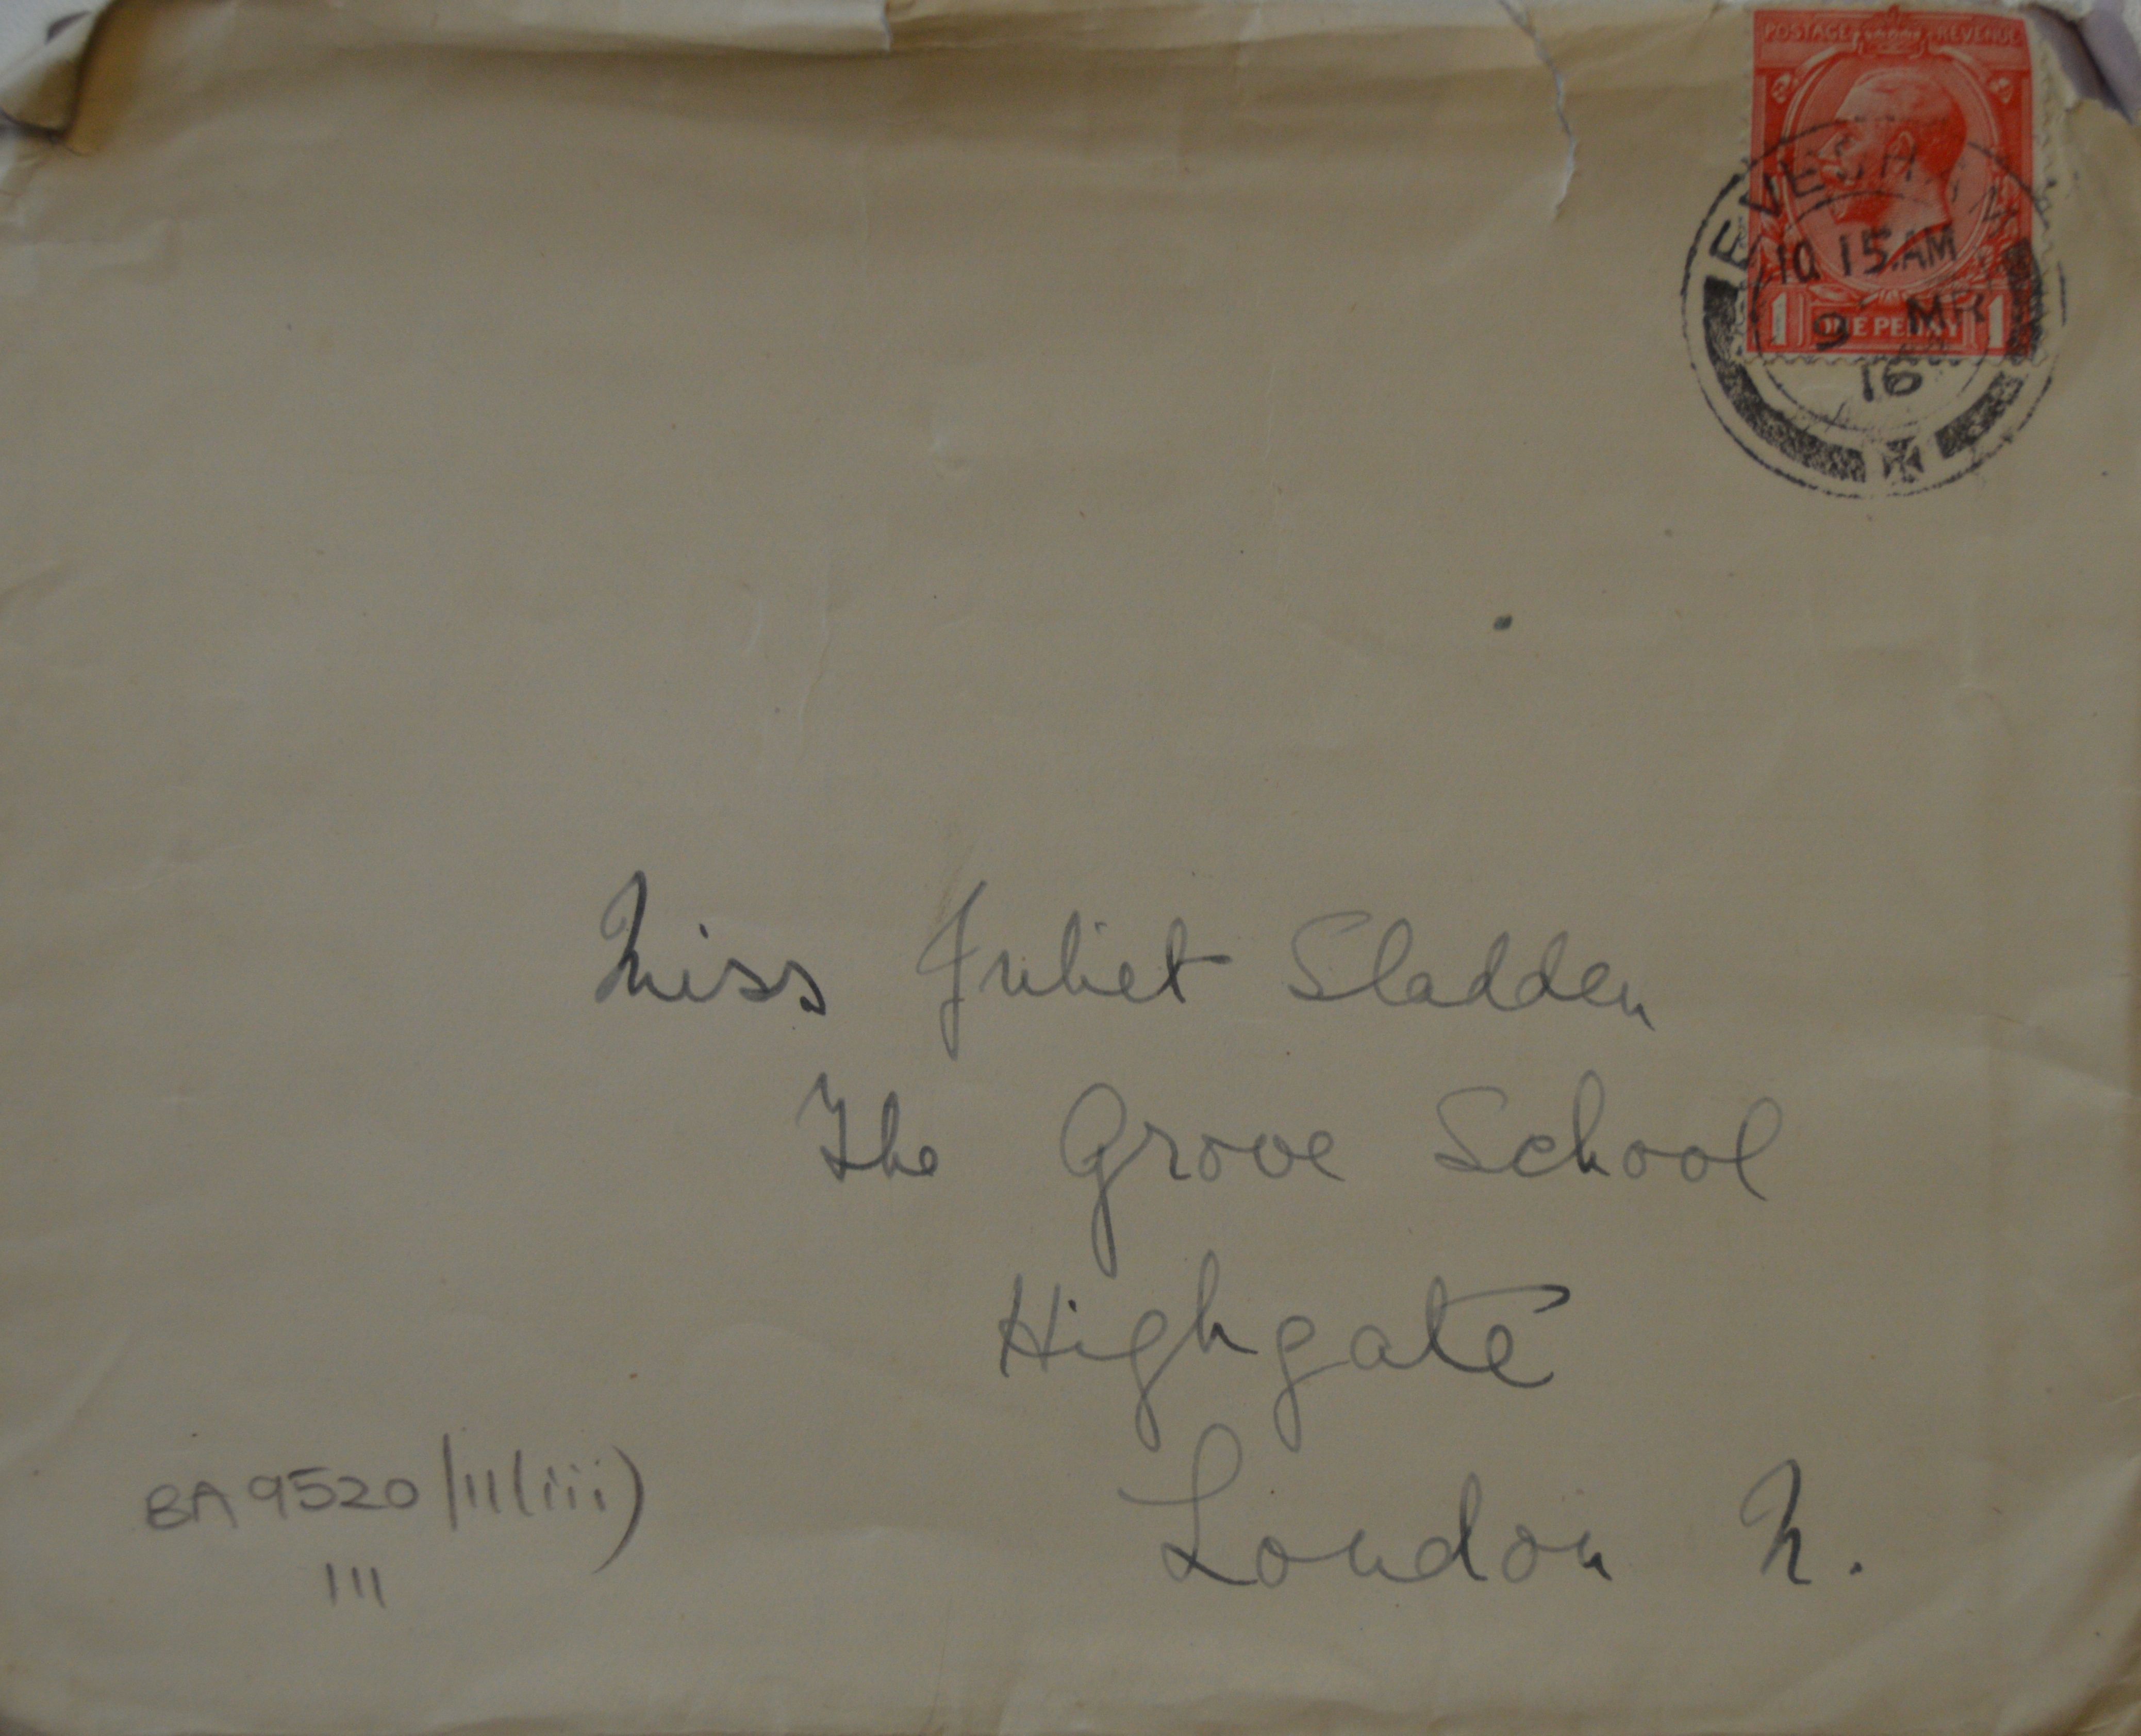 POSTAGE REVENUE
EVESHAM
10 15 AM
9 MR
16
1 ONE PENNY 1
Miss Juliet Sladden
The Grove School
Highgate
London N.
BA 9520/11(iii)
111